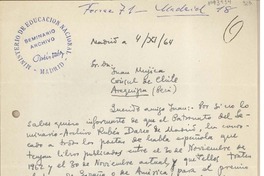 Ferraz 71 - Madrid 8
MINISTERIO DE EDUCACION NACIONAL
SEMINARIO
ARCHIVO
- MADRID -
Madrid a
4/XI/64
Sr. Dn
Juan Mujica
Cónsul de Chile
Arequipa
(Perú)
Querido amigo Juan: Por si no lo
sabes quiero informarte de que el Patronato del Se-
minario-Archivo Rubén Darío de Madrid, ha convo-
cado a todos los poetas de habla española que
tengan libro publicado entre el 30 de Noviembre de
1962 y el 30 de Noviembre actual, y que
España o de América, para el premio